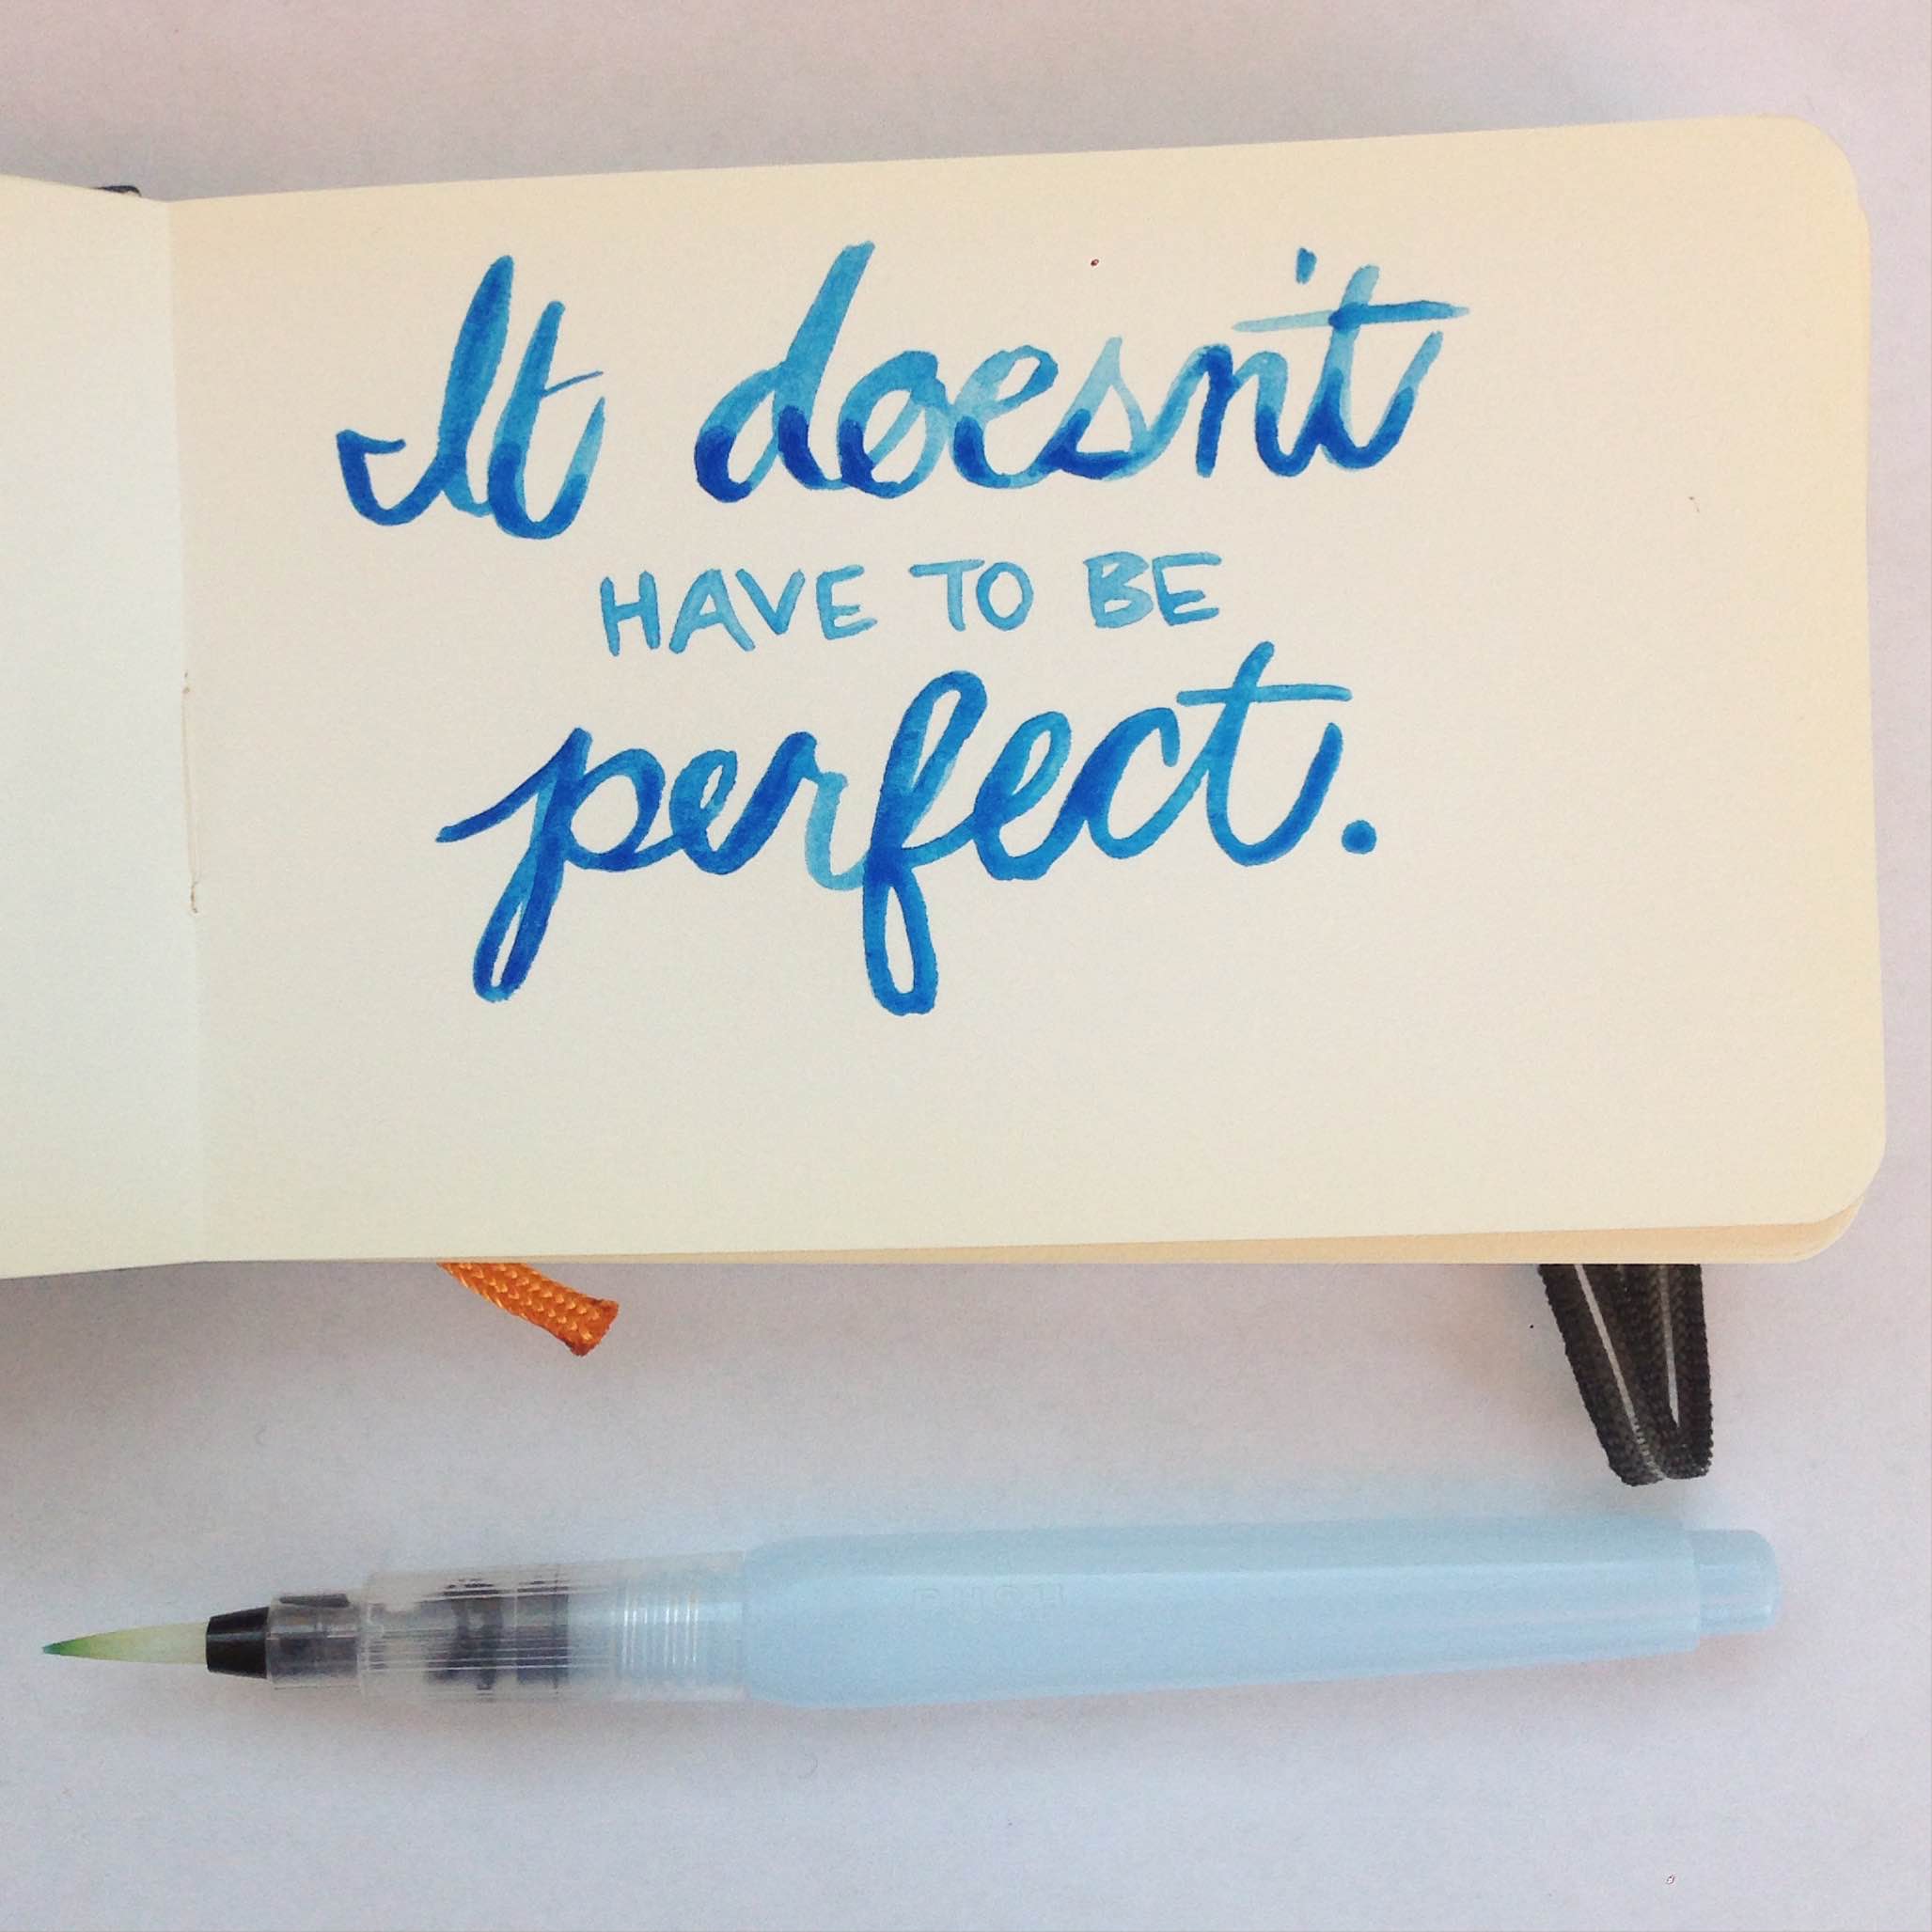 It doesn't
HAVE TO BE
perfect.